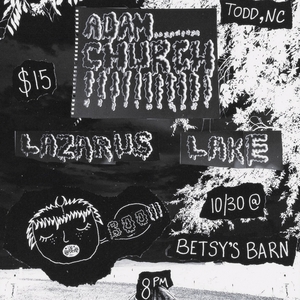 TODD, NC
ADAM
CHURCH
$15
LAZARUS LAKE
BOO!!
10/30 @
BETSY'S BARN
8 PM